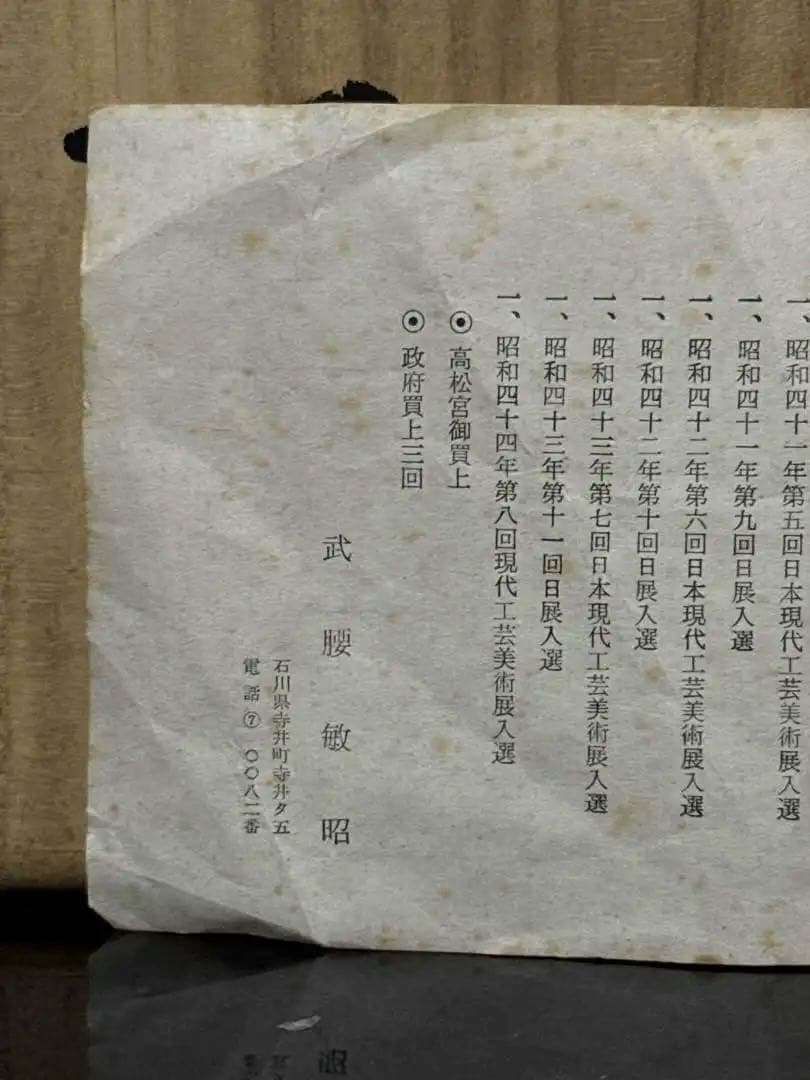 一、昭和四十一年第五回日本現代工芸美術展入選
一、昭和四十一年第九回日展入選
一、昭和四十二年第六回日本現代工芸美術展入選
一、昭和四十二年第十回日展入選
一、昭和四十三年第七回日本現代工芸美術展入選
一、昭和四十三年第十一回日展入選
一、昭和四十四年第八回現代工芸美術展入選
◉ 高松宮御買上
◉ 政府買上三回
武腰敏昭
石川県寺井町寺井タ五
電話⑦〇〇八二番